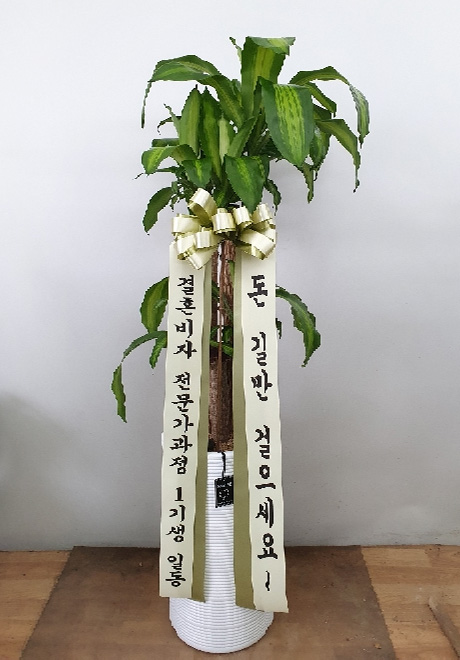 결혼비자 전문가과정 1기생 일동
돈 길반 걸으세요~